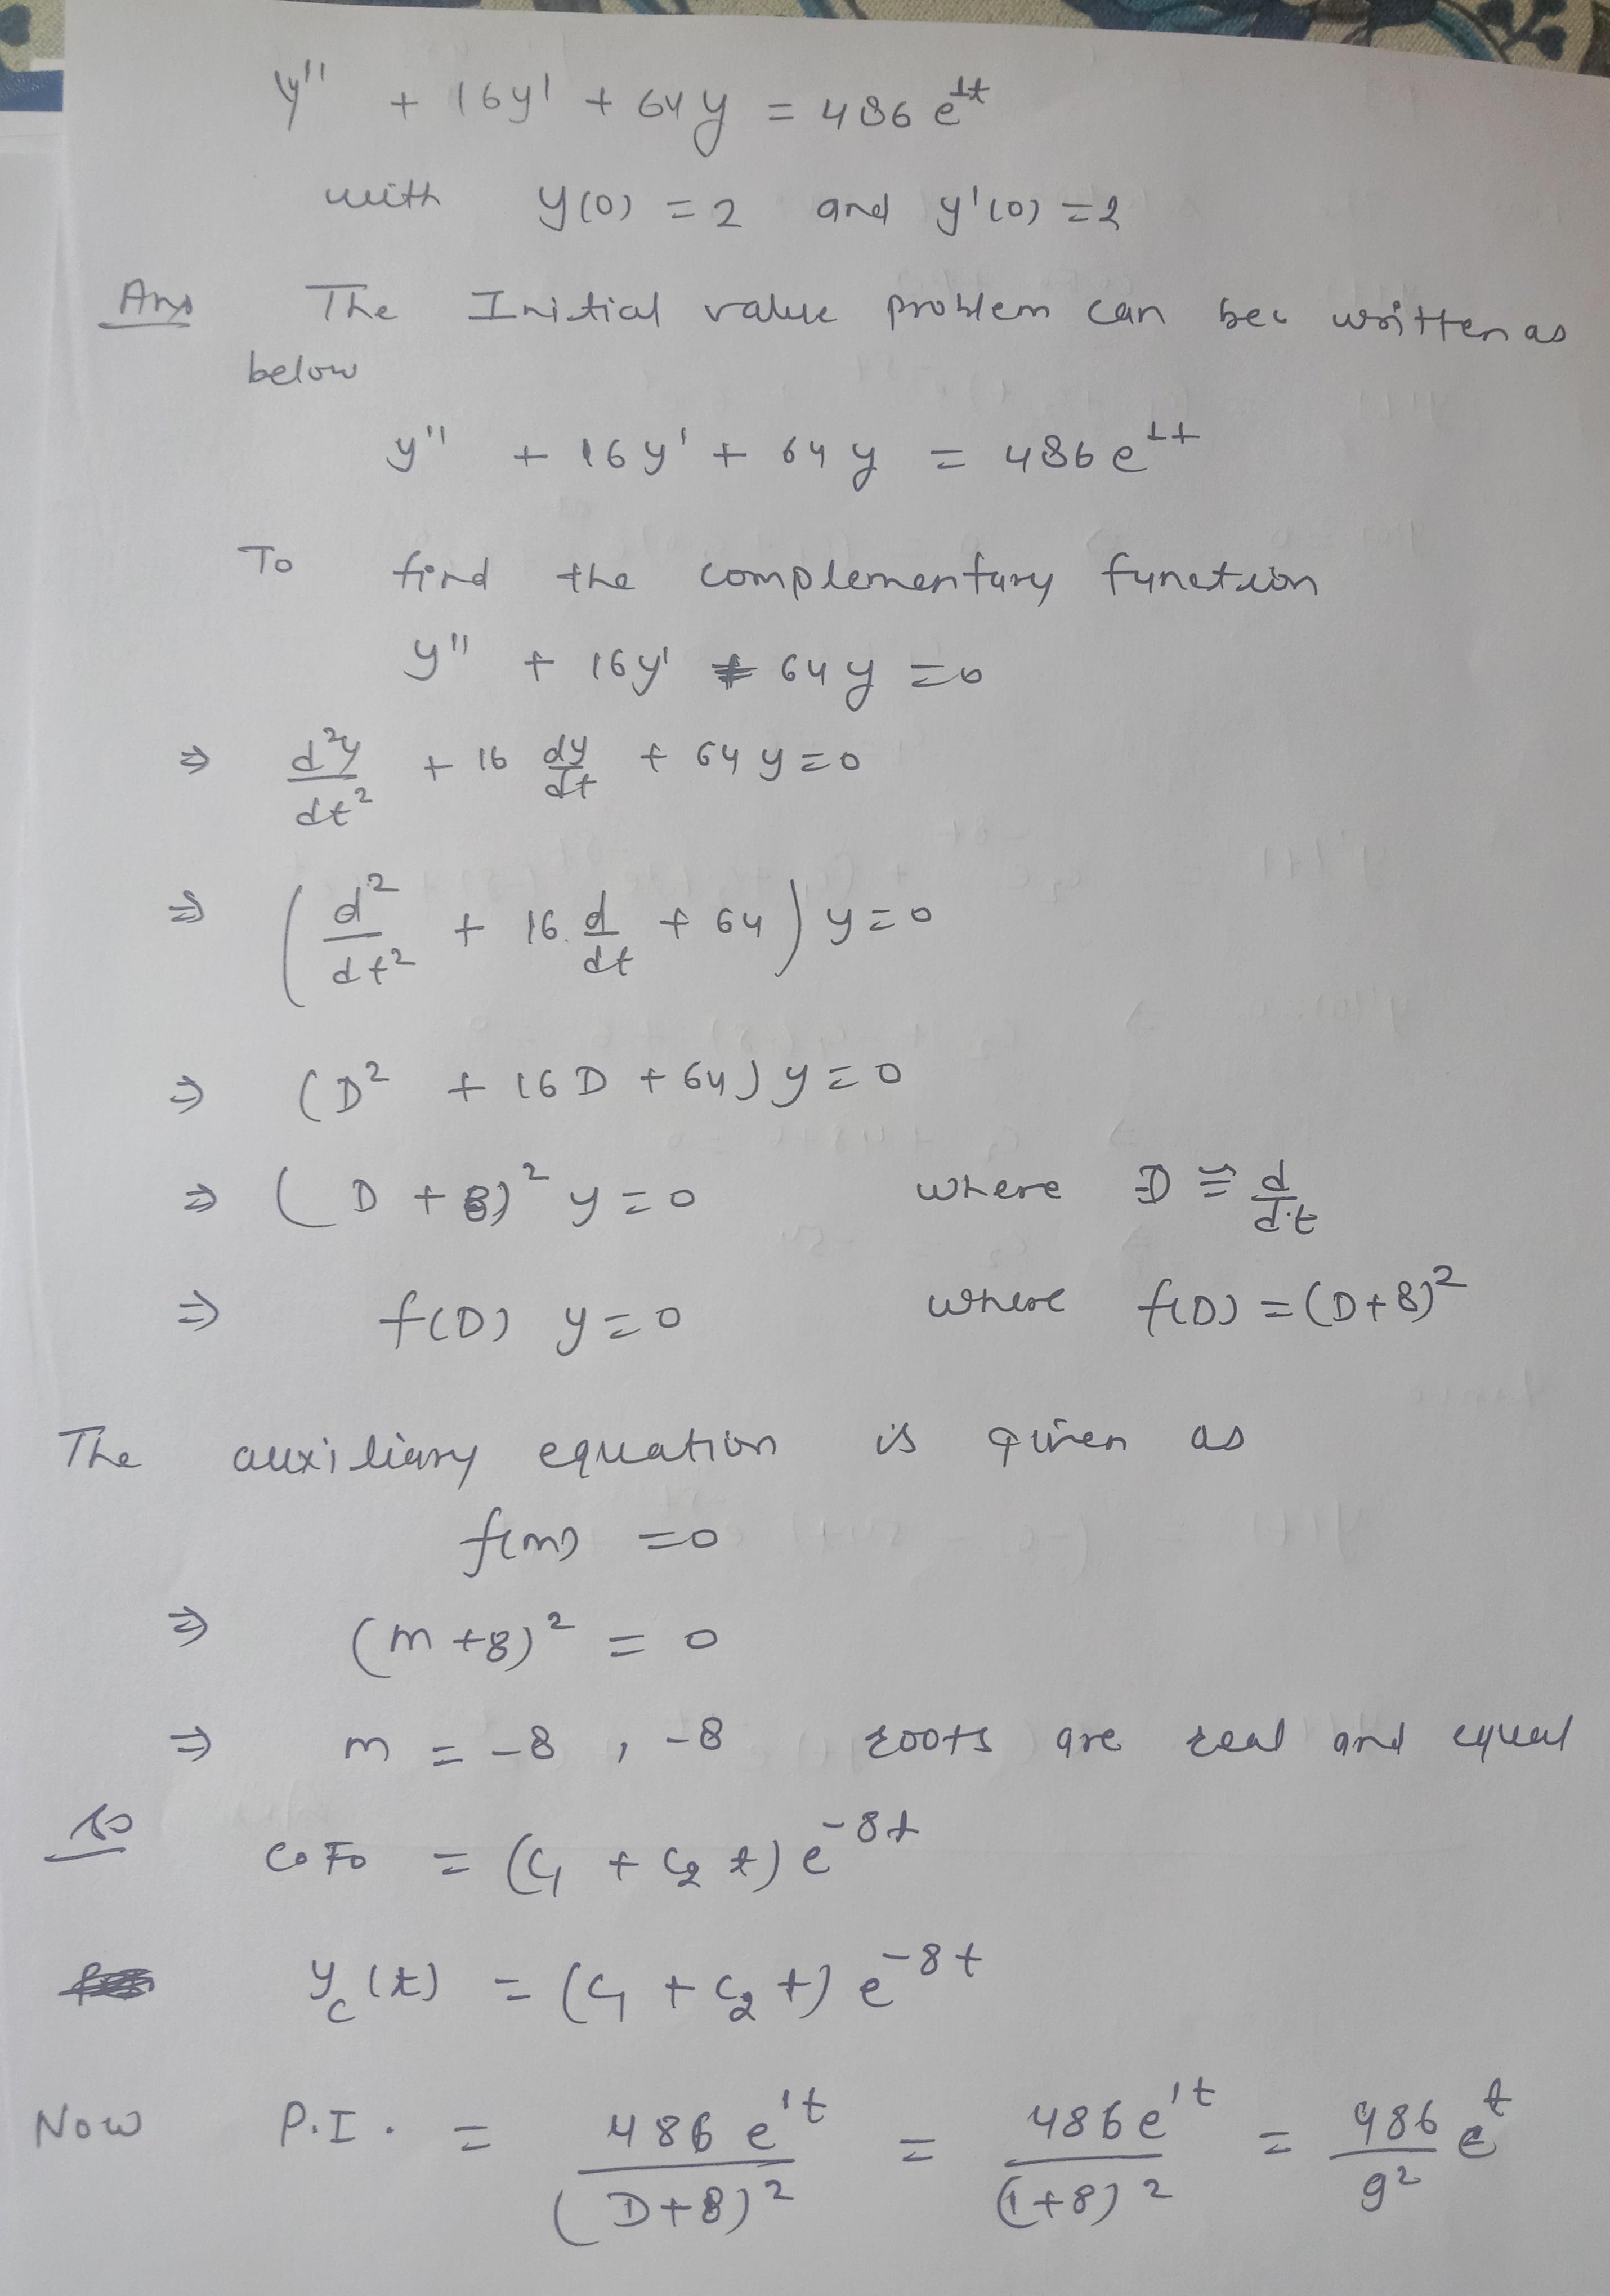 y'' + 16y' + 64y = 486 e^{1t}
with y(0) = 2 and y'(0) = 2
Ans The Initial value problem can be written as
below
y'' + 16y' + 64y = 486 e^{1t}
To find the complementary function
y'' + 16y' + 64y = 0
⇒ d²y/dt² + 16 dy/dt + 64y = 0
⇒ (d²/dt² + 16 d/dt + 64) y = 0
⇒ (D² + 16D + 64) y = 0
⇒ (D + 8)² y = 0 where D ≡ d/dt
⇒ f(D) y = 0 where f(D) = (D+8)²
The auxiliary equation is given as
f(m) = 0
⇒ (m+8)² = 0
⇒ m = -8, -8 roots are real and equal
so C.F. = (C₁ + C₂ t) e^{-8t}
y_c(t) = (C₁ + C₂ t) e^{-8t}
Now P.I. = 486 e^{1t}/(D+8)² = 486 e^{1t}/(1+8)² = 486/9² e^t